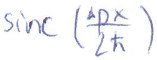 sinc (Δpx/2ħ)